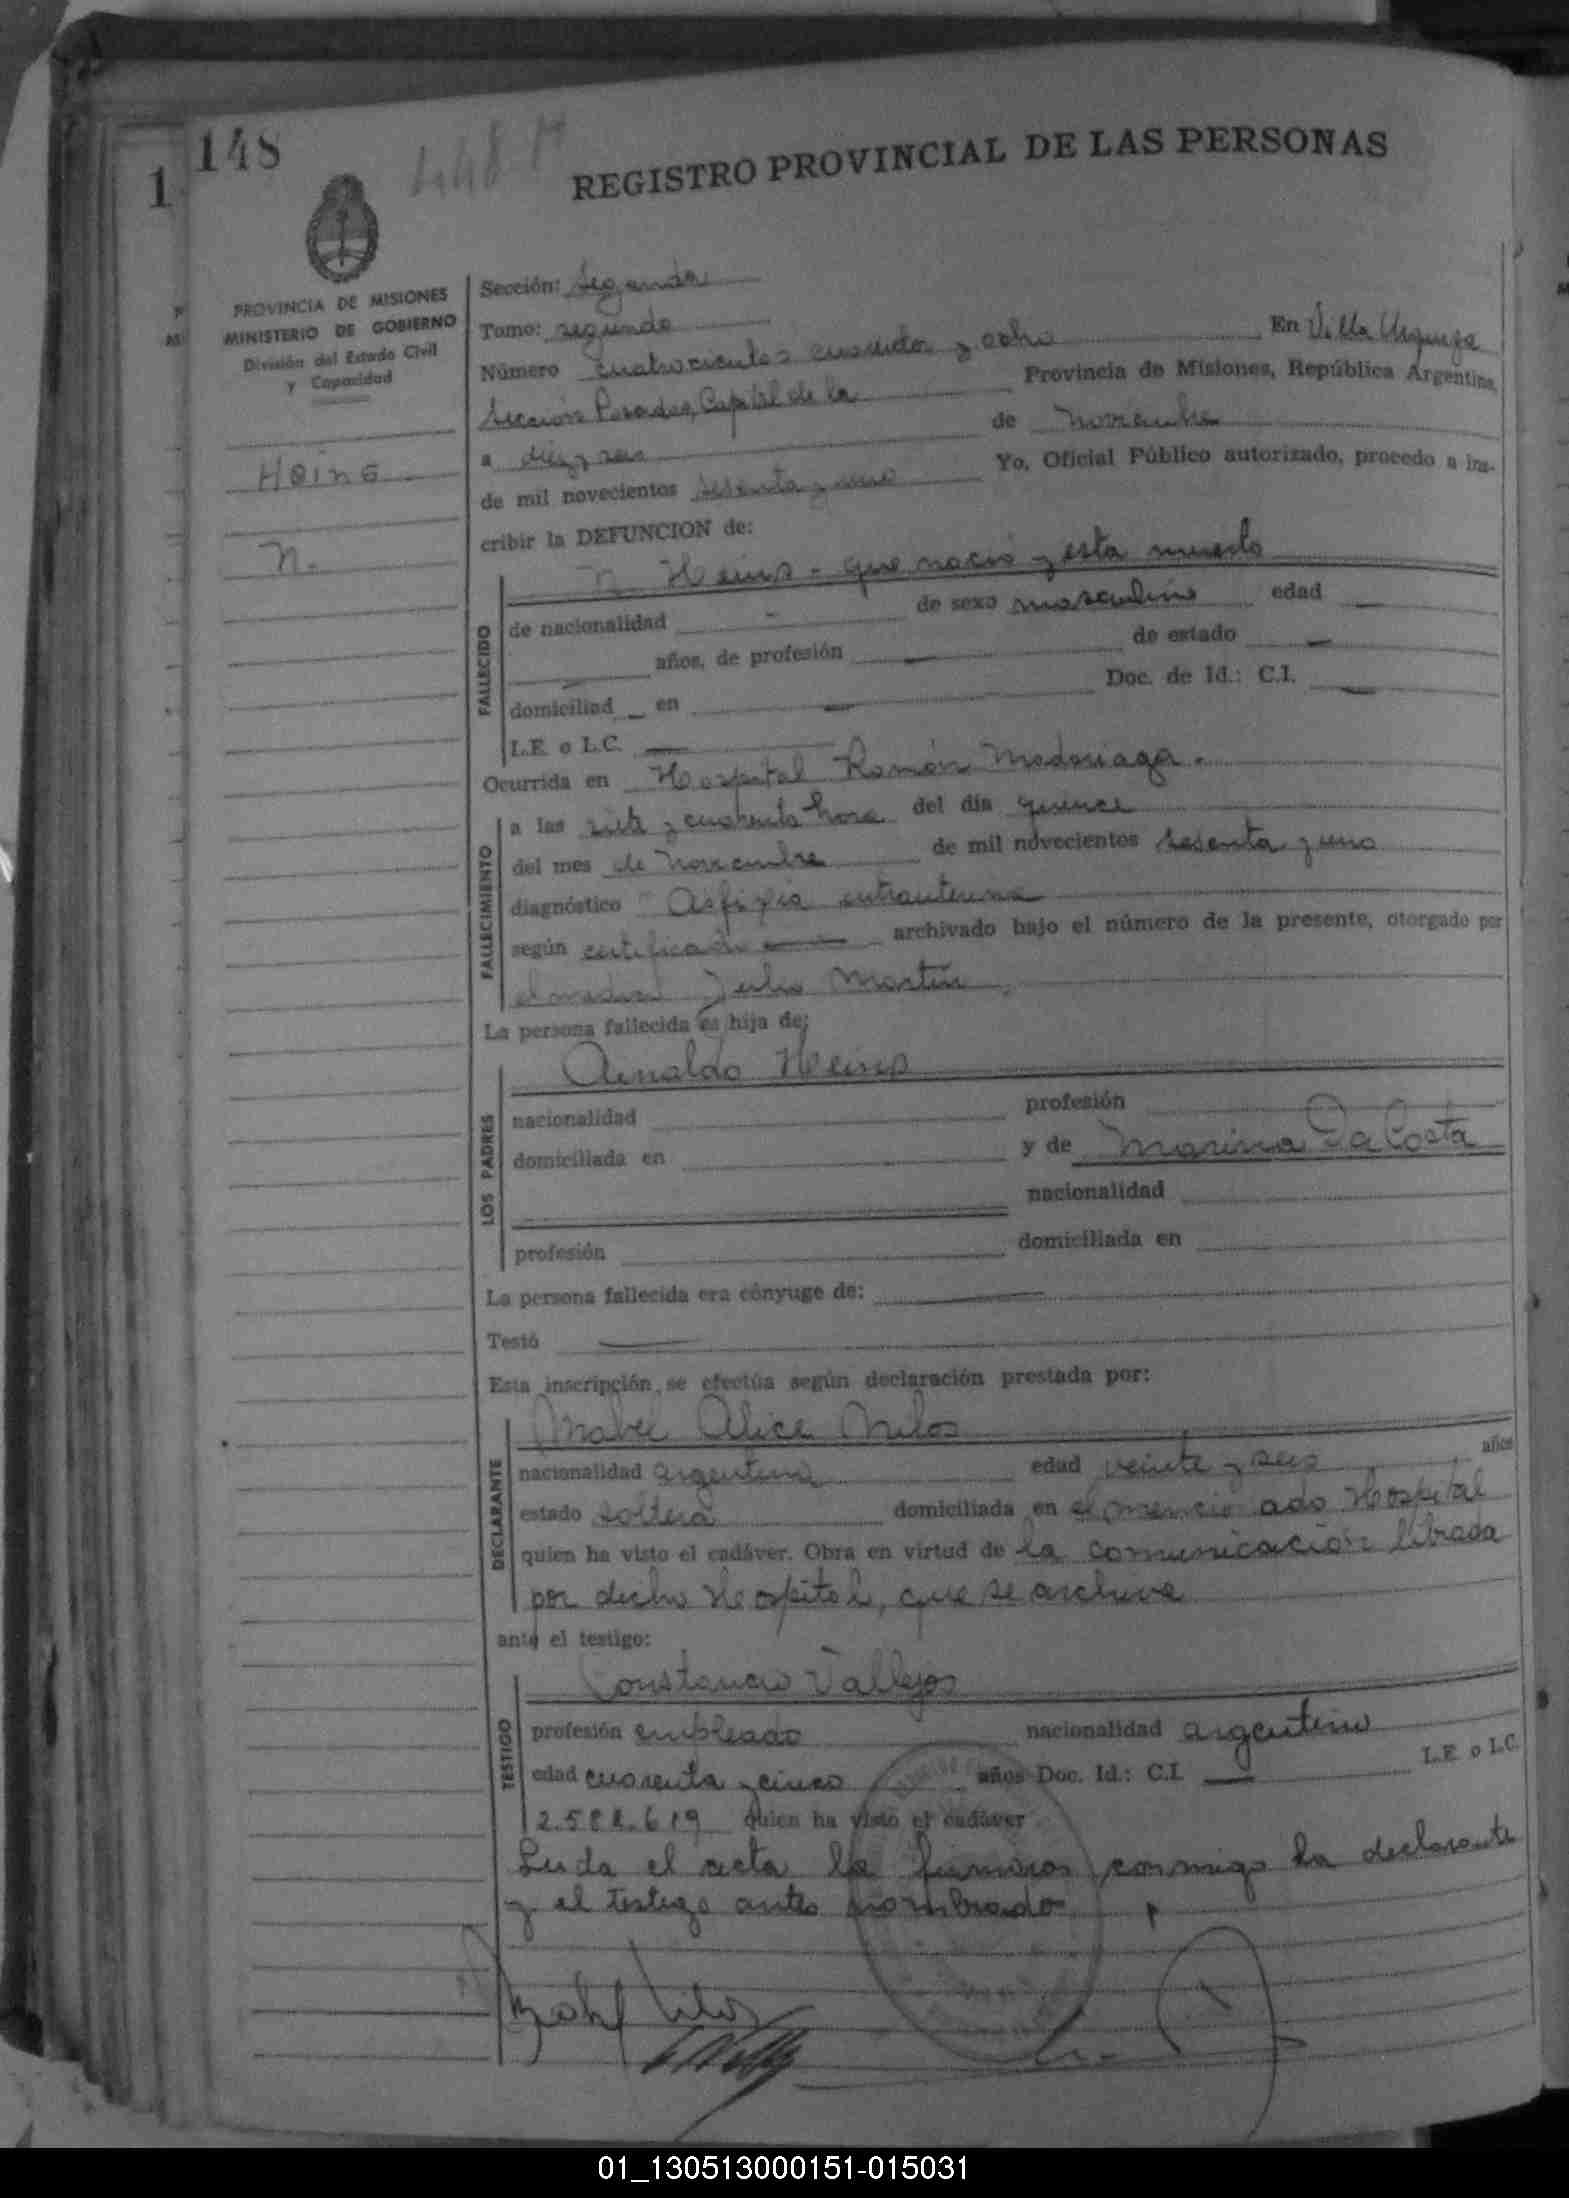 148
448 M
1
REGISTRO PROVINCIAL DE LAS PERSONAS
PROVINCIA DE MISIONES
MINISTERIO DE GOBIERNO
División del Estado Civil
y Capacidad
Heins
N.
Sección: Segunda
Tomo: segundo
Número cuatrocientos cuarenta y ocho En Villa Urquiza
Sección Posadas, Capital de la Provincia de Misiones, República Argentina,
a diez y seis de noviembre
de mil novecientos sesenta y uno Yo, Oficial Público autorizado, procedo a ins-
cribir la DEFUNCION de:
FALLECIDO
N. Heins - que nació y esta muerto
de nacionalidad - de sexo masculino edad —
— años, de profesión — de estado —
domiciliad — en — Doc. de Id.: C.I. —
L.E. o L.C. —
Ocurrida en Hospital Ramón Madariaga.
FALLECIMIENTO
a las siete y cuarenta hora del día quince
del mes de noviembre de mil novecientos sesenta y uno
diagnóstico Asfixia intrauterina
según certificado — archivado bajo el número de la presente, otorgado por
el medico Julio Martín.
La persona fallecida es hija de:
LOS PADRES
Arnaldo Heins
nacionalidad profesión
domiciliada en y de Marina Da Costa
nacionalidad
profesión domiciliada en
La persona fallecida era cónyuge de: —
Testó —
Esta inscripción se efectúa según declaración prestada por:
DECLARANTE
Mabel Alice
nacionalidad argentina edad veinte y seis años
estado soltera domiciliada en el mencionado Hospital
quien ha visto el cadáver. Obra en virtud de la comunicación librada
por dicho Hospital, que se archiva
ante el testigo:
TESTIGO
Constancio Vallejos
profesión empleado nacionalidad argentino
edad cuarenta y cinco años Doc. Id.: C.I. — L.E. o L.C.
quien ha visto el cadáver
Leida el acta la firmaron conmigo la declarante
y el testigo antes nombrado
01_130513000151-015031